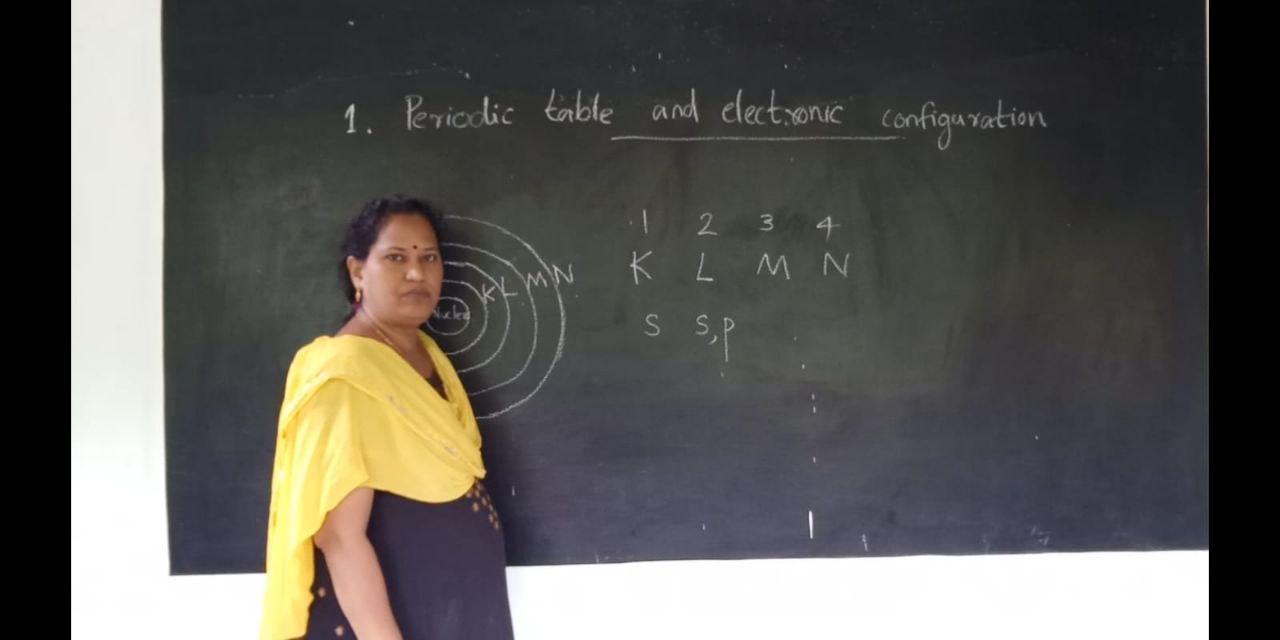 1. Periodic table and electronic configuration
1 2 3 4
K L M N
K L M N
s s,p